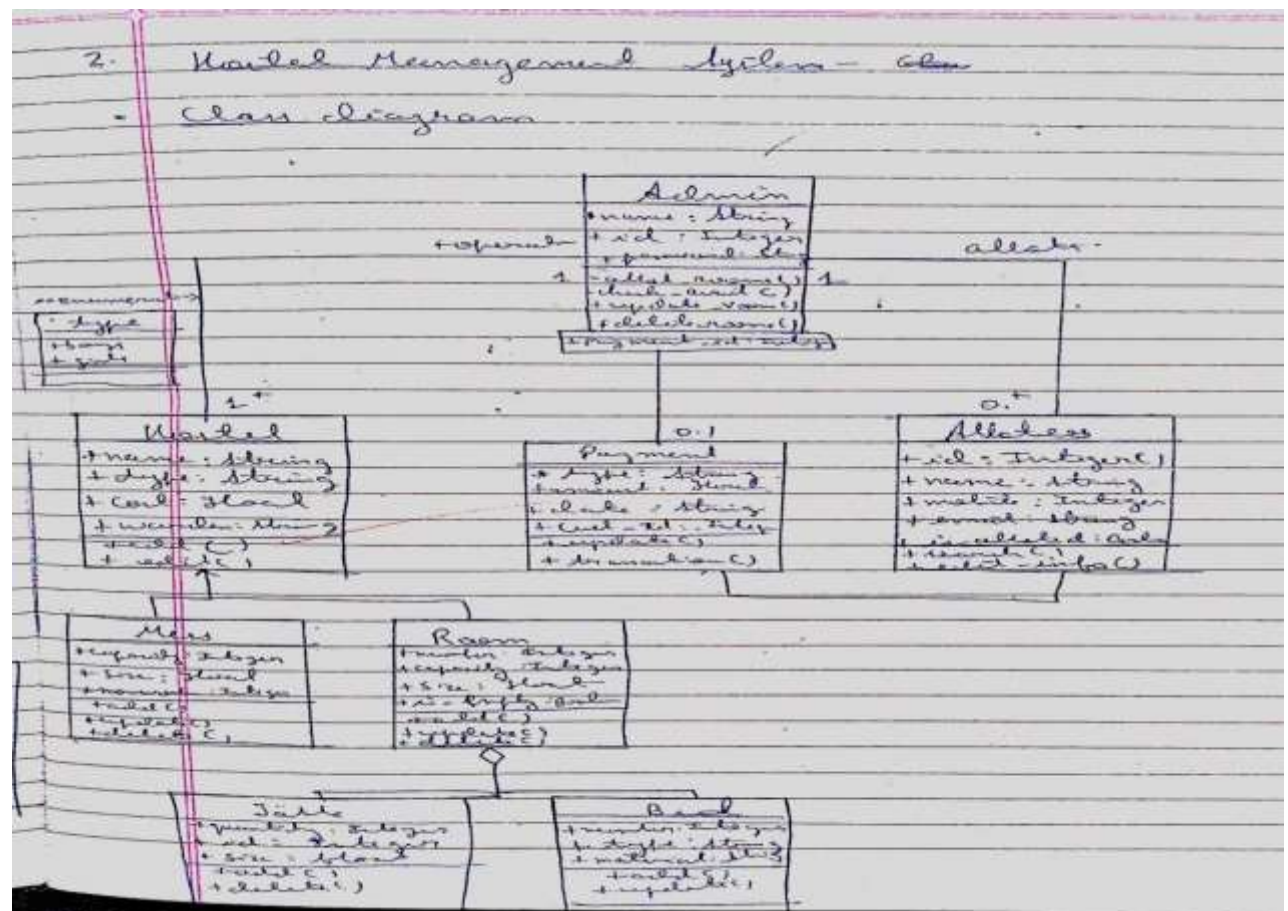 2. Hostel Management System -
Class diagram
Admin
+name : String
+ id : Integer
+ password : String
- allot_room()
- check_avail()
+ update_room()
+ delete room()
+ payment_id : Integ
+ operat
allots
1
1
type
+ boys
+ girls
1*
0.1
0.*
Hostel
+ name : String
+ type : String
+ cost : float
+ warden : String
+ add()
+ edit()
Payment
+ type : String
+ amount : float
+ date : String
+ update()
+ transaction()
+ id : Integer()
+ name : String
+ mobile : Integer
+ email : String
+ search()
+ edit_info()
Mess
+ capacity : Integer
+ size : float
+ add()
+ update()
+ delete()
Room
+ number : Integer
+ capacity : Integer
+ size : float
+ add()
+ update()
+ delete()
Table
+ quantity : Integer
+ id : Integer
+ size : float
+ add()
+ delete()
+ number : Integer
+ type : String
+ add()
+ update()